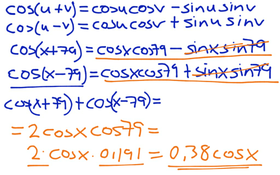 cos(u+v)=cosucosv-sinusinv
cos(u-v)=cosucosv+sinusinv
cos(x+79)=cosxcos79-sinxsin79
cos(x-79)=cosxcos79+sinxsin79
cos(x+79)+cos(x-79)=
=2cosxcos79=
2·cosx·0,191=0,38cosx